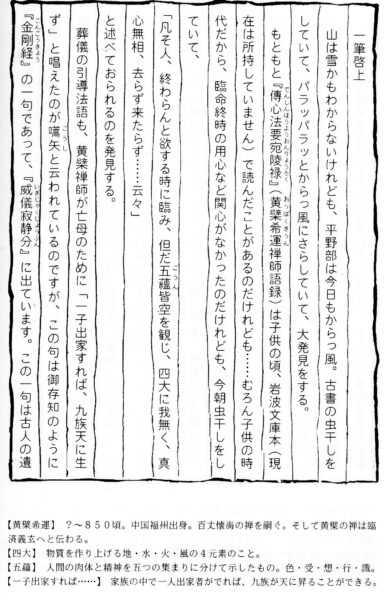 一筆啓上
山は雪かもわからないけれども、平野部は今日もからっ風。古書の虫干しを
していて、パラッパラッとからっ風にさらしていて、大発見をする。
もともと『傳心法要宛陵禄』(黄檗希運禅師語録)は子供の頃、岩波文庫本(現
在は所持していません)で読んだことがあるのだけれども……むろん子供の時
代だから、臨命終時の用心など関心がなかったのだけれども、今朝虫干しをし
ていて、
「凡そ人、終わらんと欲する時に臨み、但だ五蘊皆空を観じ、四大に我無く、真
心無相、去らず来たらず……云々」
と述べておられるのを発見する。
葬儀の引導法語も、黄檗禅師が亡母のために「一子出家すれば、九族天に生
ず」と唱えたのが嚆矢と云われているのですが、この句は御存知のように
『金剛経』の一句であって、『威儀寂静分』に出ています。この一句は古人の遺
【黄檗希運】 ?〜850頃。中国福州出身。百丈懐海の禅を嗣ぐ。そして黄檗の禅は臨
済義玄へと伝わる。
【四大】 物質を作り上げる地・水・火・風の4元素のこと。
【五蘊】 人間の肉体と精神を五つの集まりに分けて示したもの。色・受・想・行・識。
【一子出家すれば……】 家族の中で一人出家者がでれば、九族が天に昇ることができる。